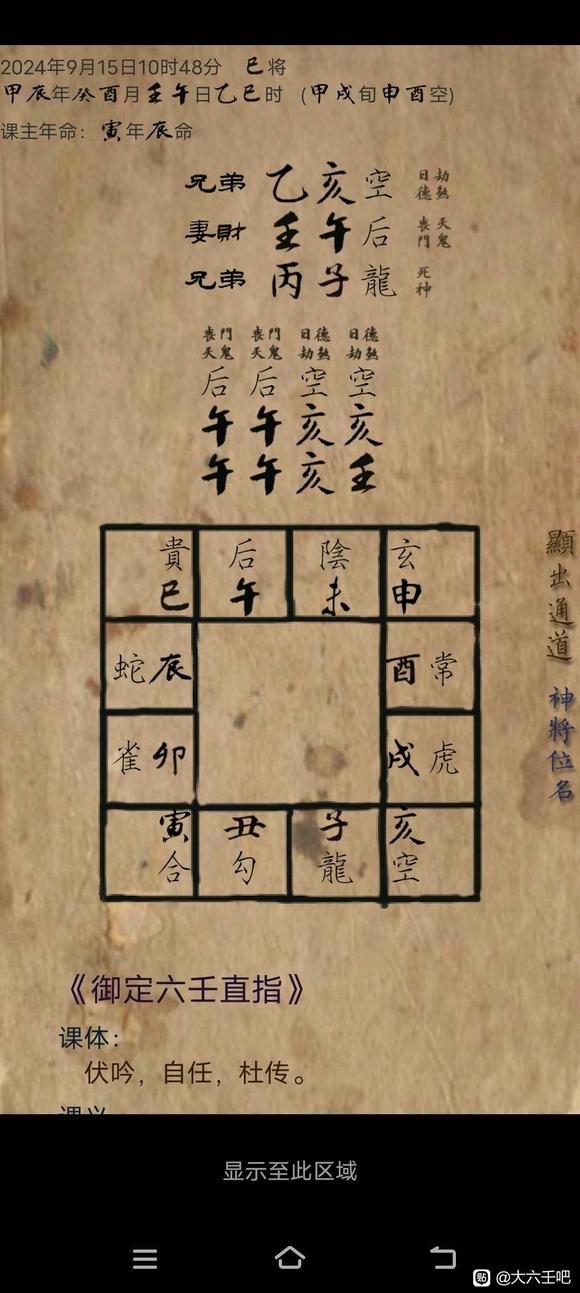 2024年9月15日10时48分 巳将
甲辰年癸酉月壬午日乙巳时 (甲戌旬申酉空)
课主年命：寅年辰命
兄弟 乙亥空 日德 劫煞
妻財 壬午后 喪門 天鬼
兄弟 丙子龍 死神
喪門 喪門 日德 日德
天鬼 天鬼 劫煞 劫煞
后 后 空 空
午 午 亥 亥
午 午 亥 壬
貴 后 陰 玄
巳 午 未 申
蛇辰 酉常
雀卯 戌虎
寅 丑 子 亥
合 勾 龍 空
顯出通道 神將位名
《御定六壬直指》
课体：
伏吟，自任，杜传。
显示至此区域
贴 @大六壬吧